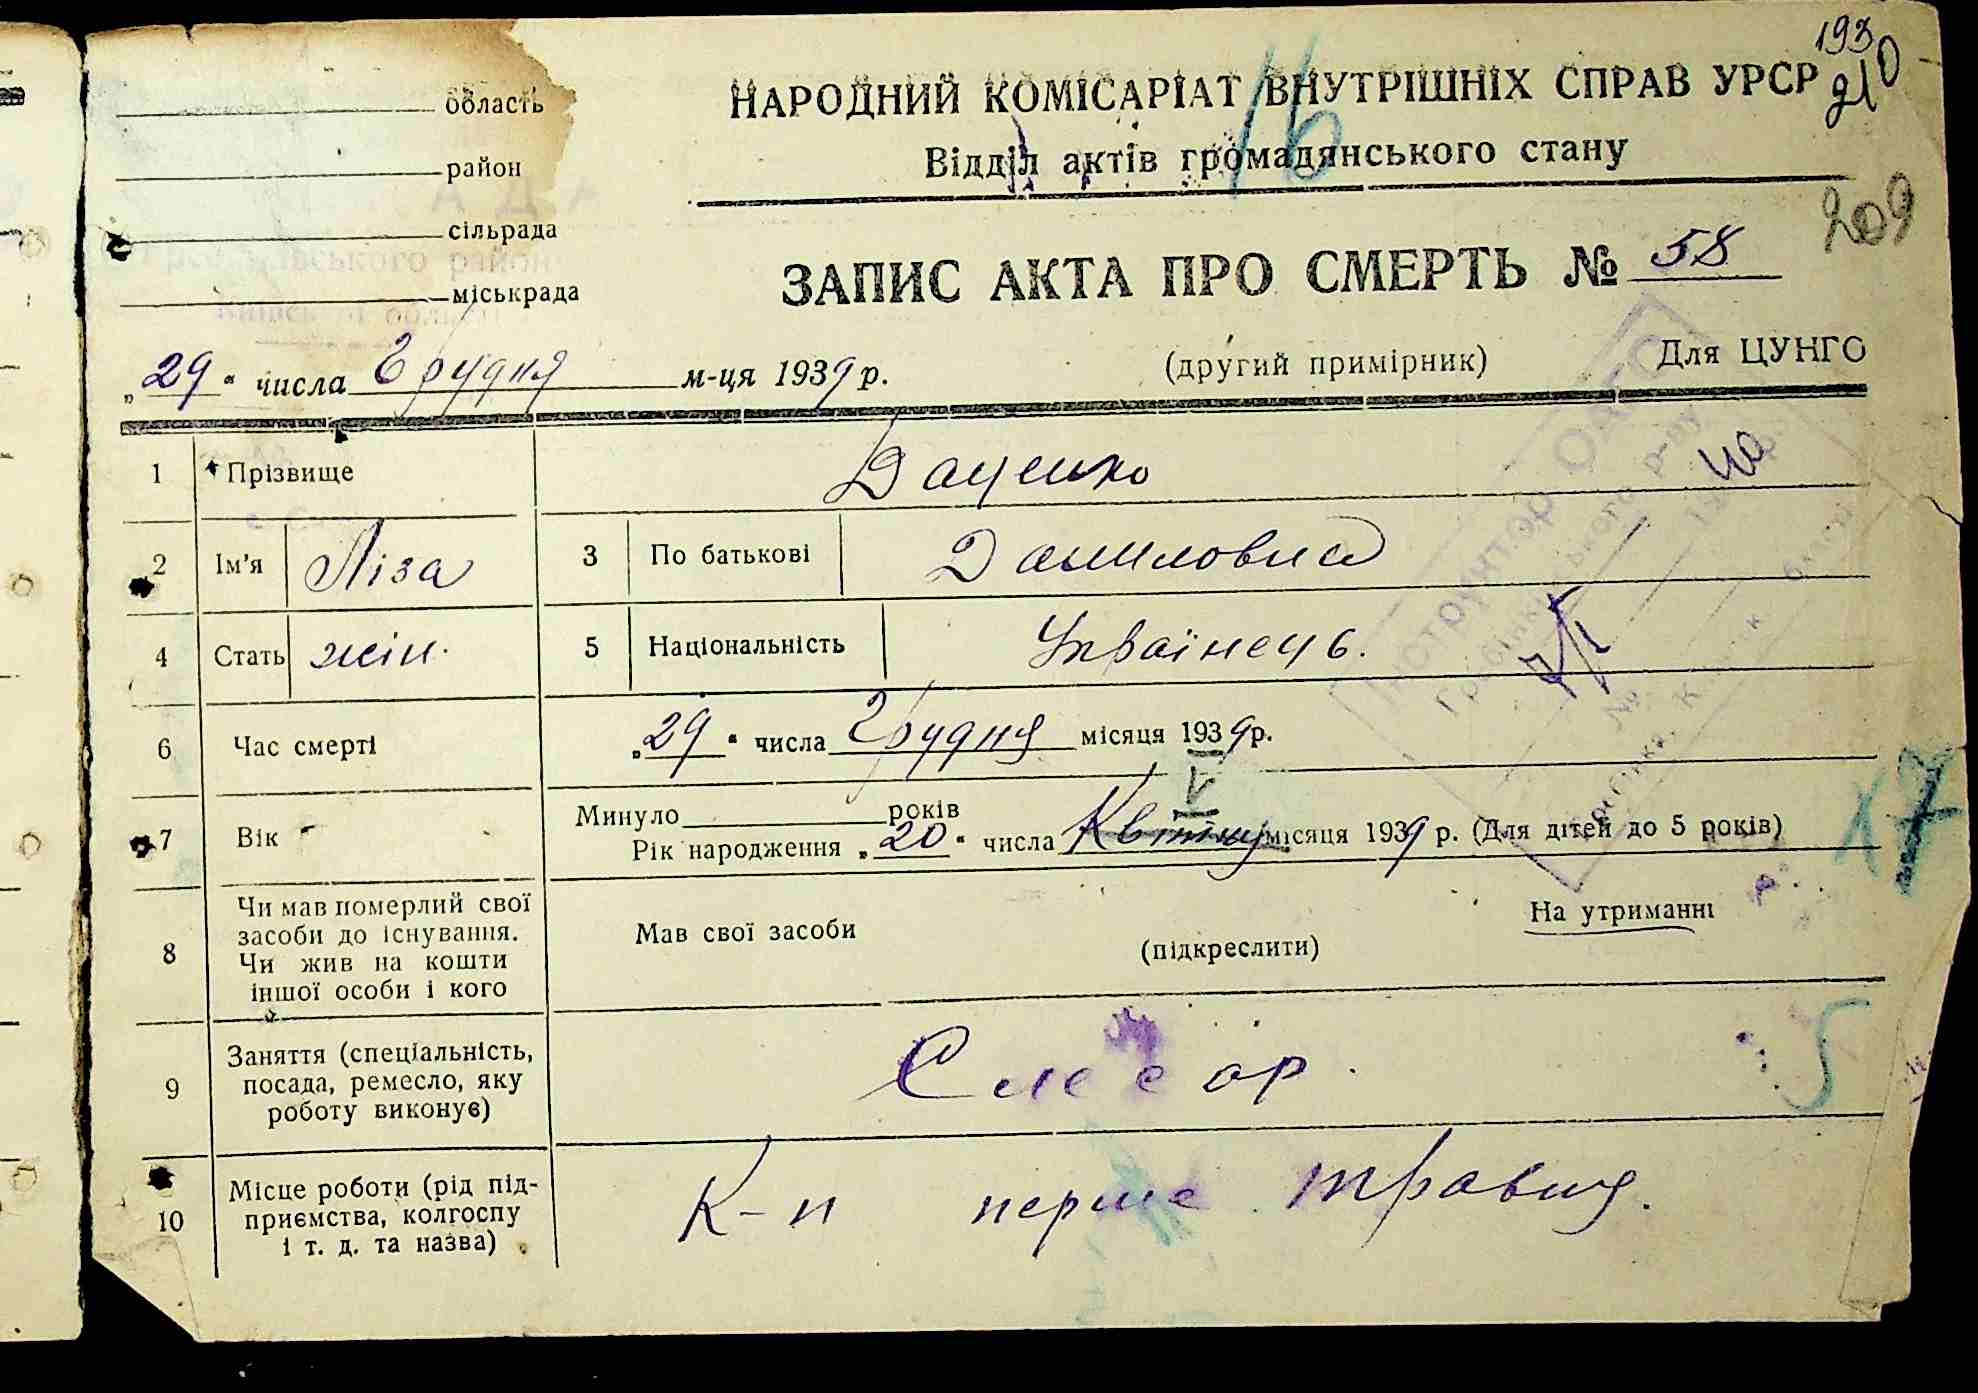 193
210
область
НАРОДНИЙ КОМІСАРІАТ ВНУТРІШНІХ СПРАВ УРСР
16
район
Відділ актів громадянського стану
сільрада
209
міськрада
ЗАПИС АКТА ПРО СМЕРТЬ № 58
„29“ числа Грудня м-ця 1939 р.
(другий примірник)
Для ЦУНГО
1 Прізвище Даценко
2 Ім'я Ліза 3 По батькові Даниловна
4 Стать жін. 5 Національність Українець.
6 Час смерті „29“ числа Грудня місяця 1939 р.
7 Вік Минуло років
V
Рік народження „20“ числа Квітня місяця 1939 р. (Для дітей до 5 років)
17
8 Чи мав померлий свої засоби до існування. Чи жив на кошти іншої особи і кого
Мав свої засоби (підкреслити) На утриманні
9 Заняття (спеціальність, посада, ремесло, яку роботу виконує)
Слесар.
5
10 Місце роботи (рід підприємства, колгоспу і т. д. та назва)
К-п перше травня.